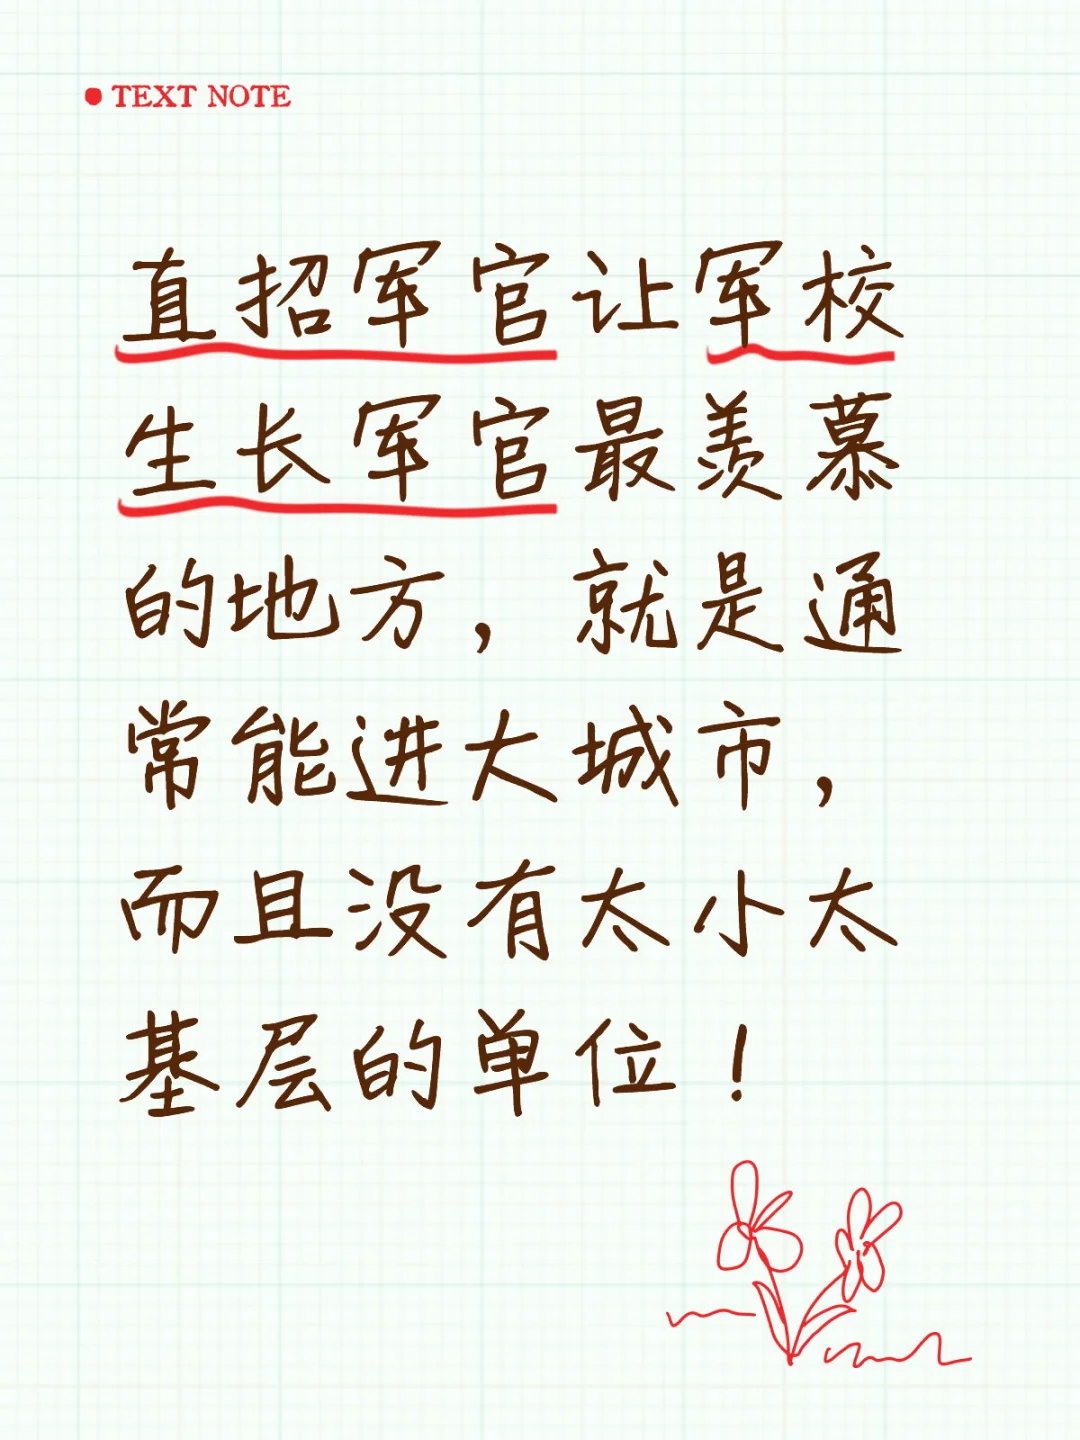 TEXT NOTE
直招军官让军校
生长军官最羡慕
的地方，就是通
常能进大城市，
而且没有太小太
基层的单位！